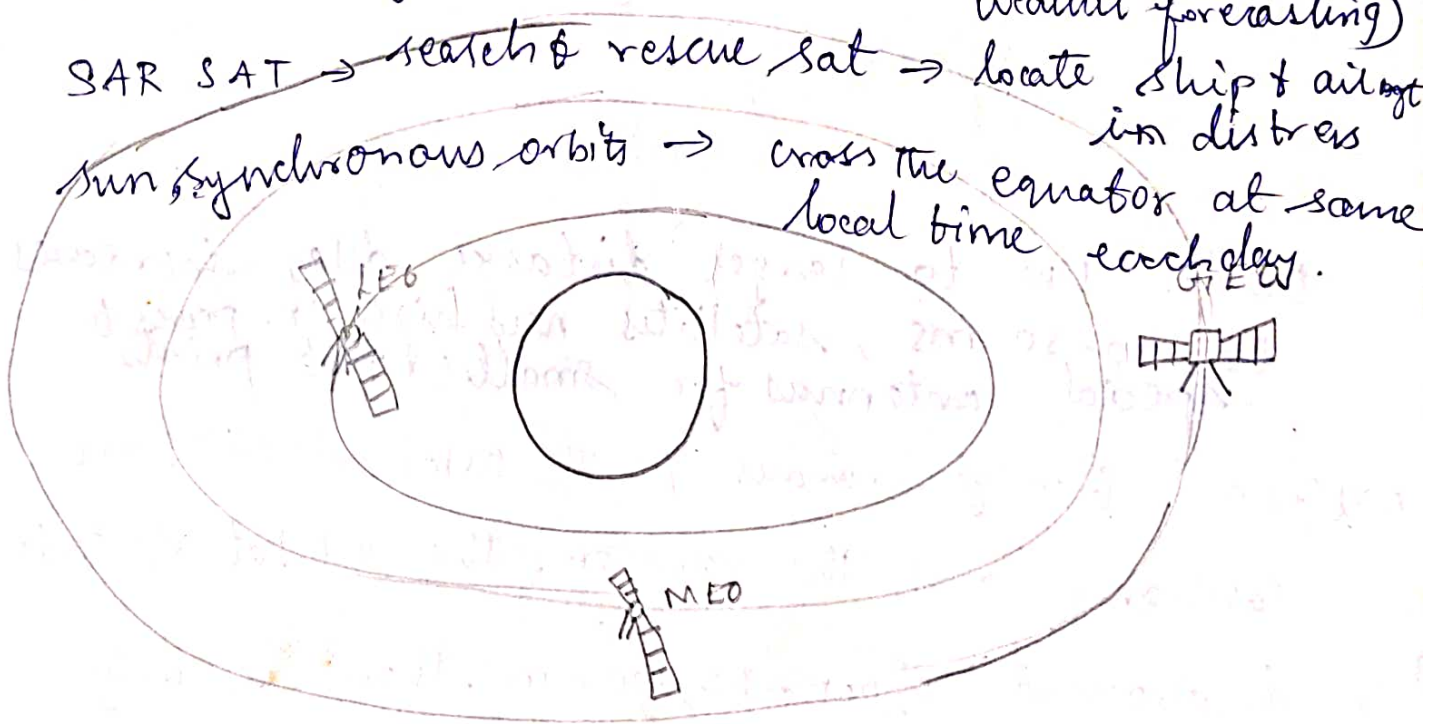 forecasting)
SAR SAT → search & rescue sat → locate ship &
in distress
sun synchronous orbits → cross the equator at same
local time each day.
LEO
GEO
MEO